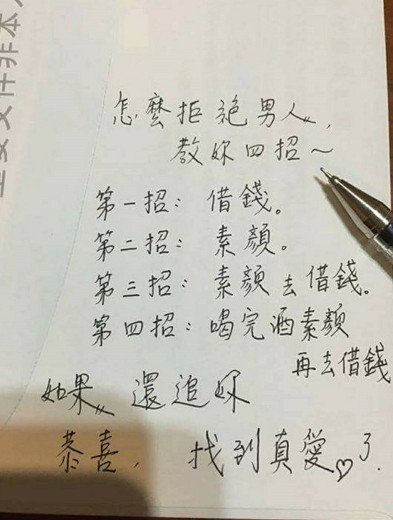 怎麼拒絕男人，
教妳四招～
第一招：借錢。
第二招：素顏。
第三招：素顏去借錢。
第四招：喝完酒素顏
再去借錢
如果，還追妳
恭喜，找到真愛♡了.